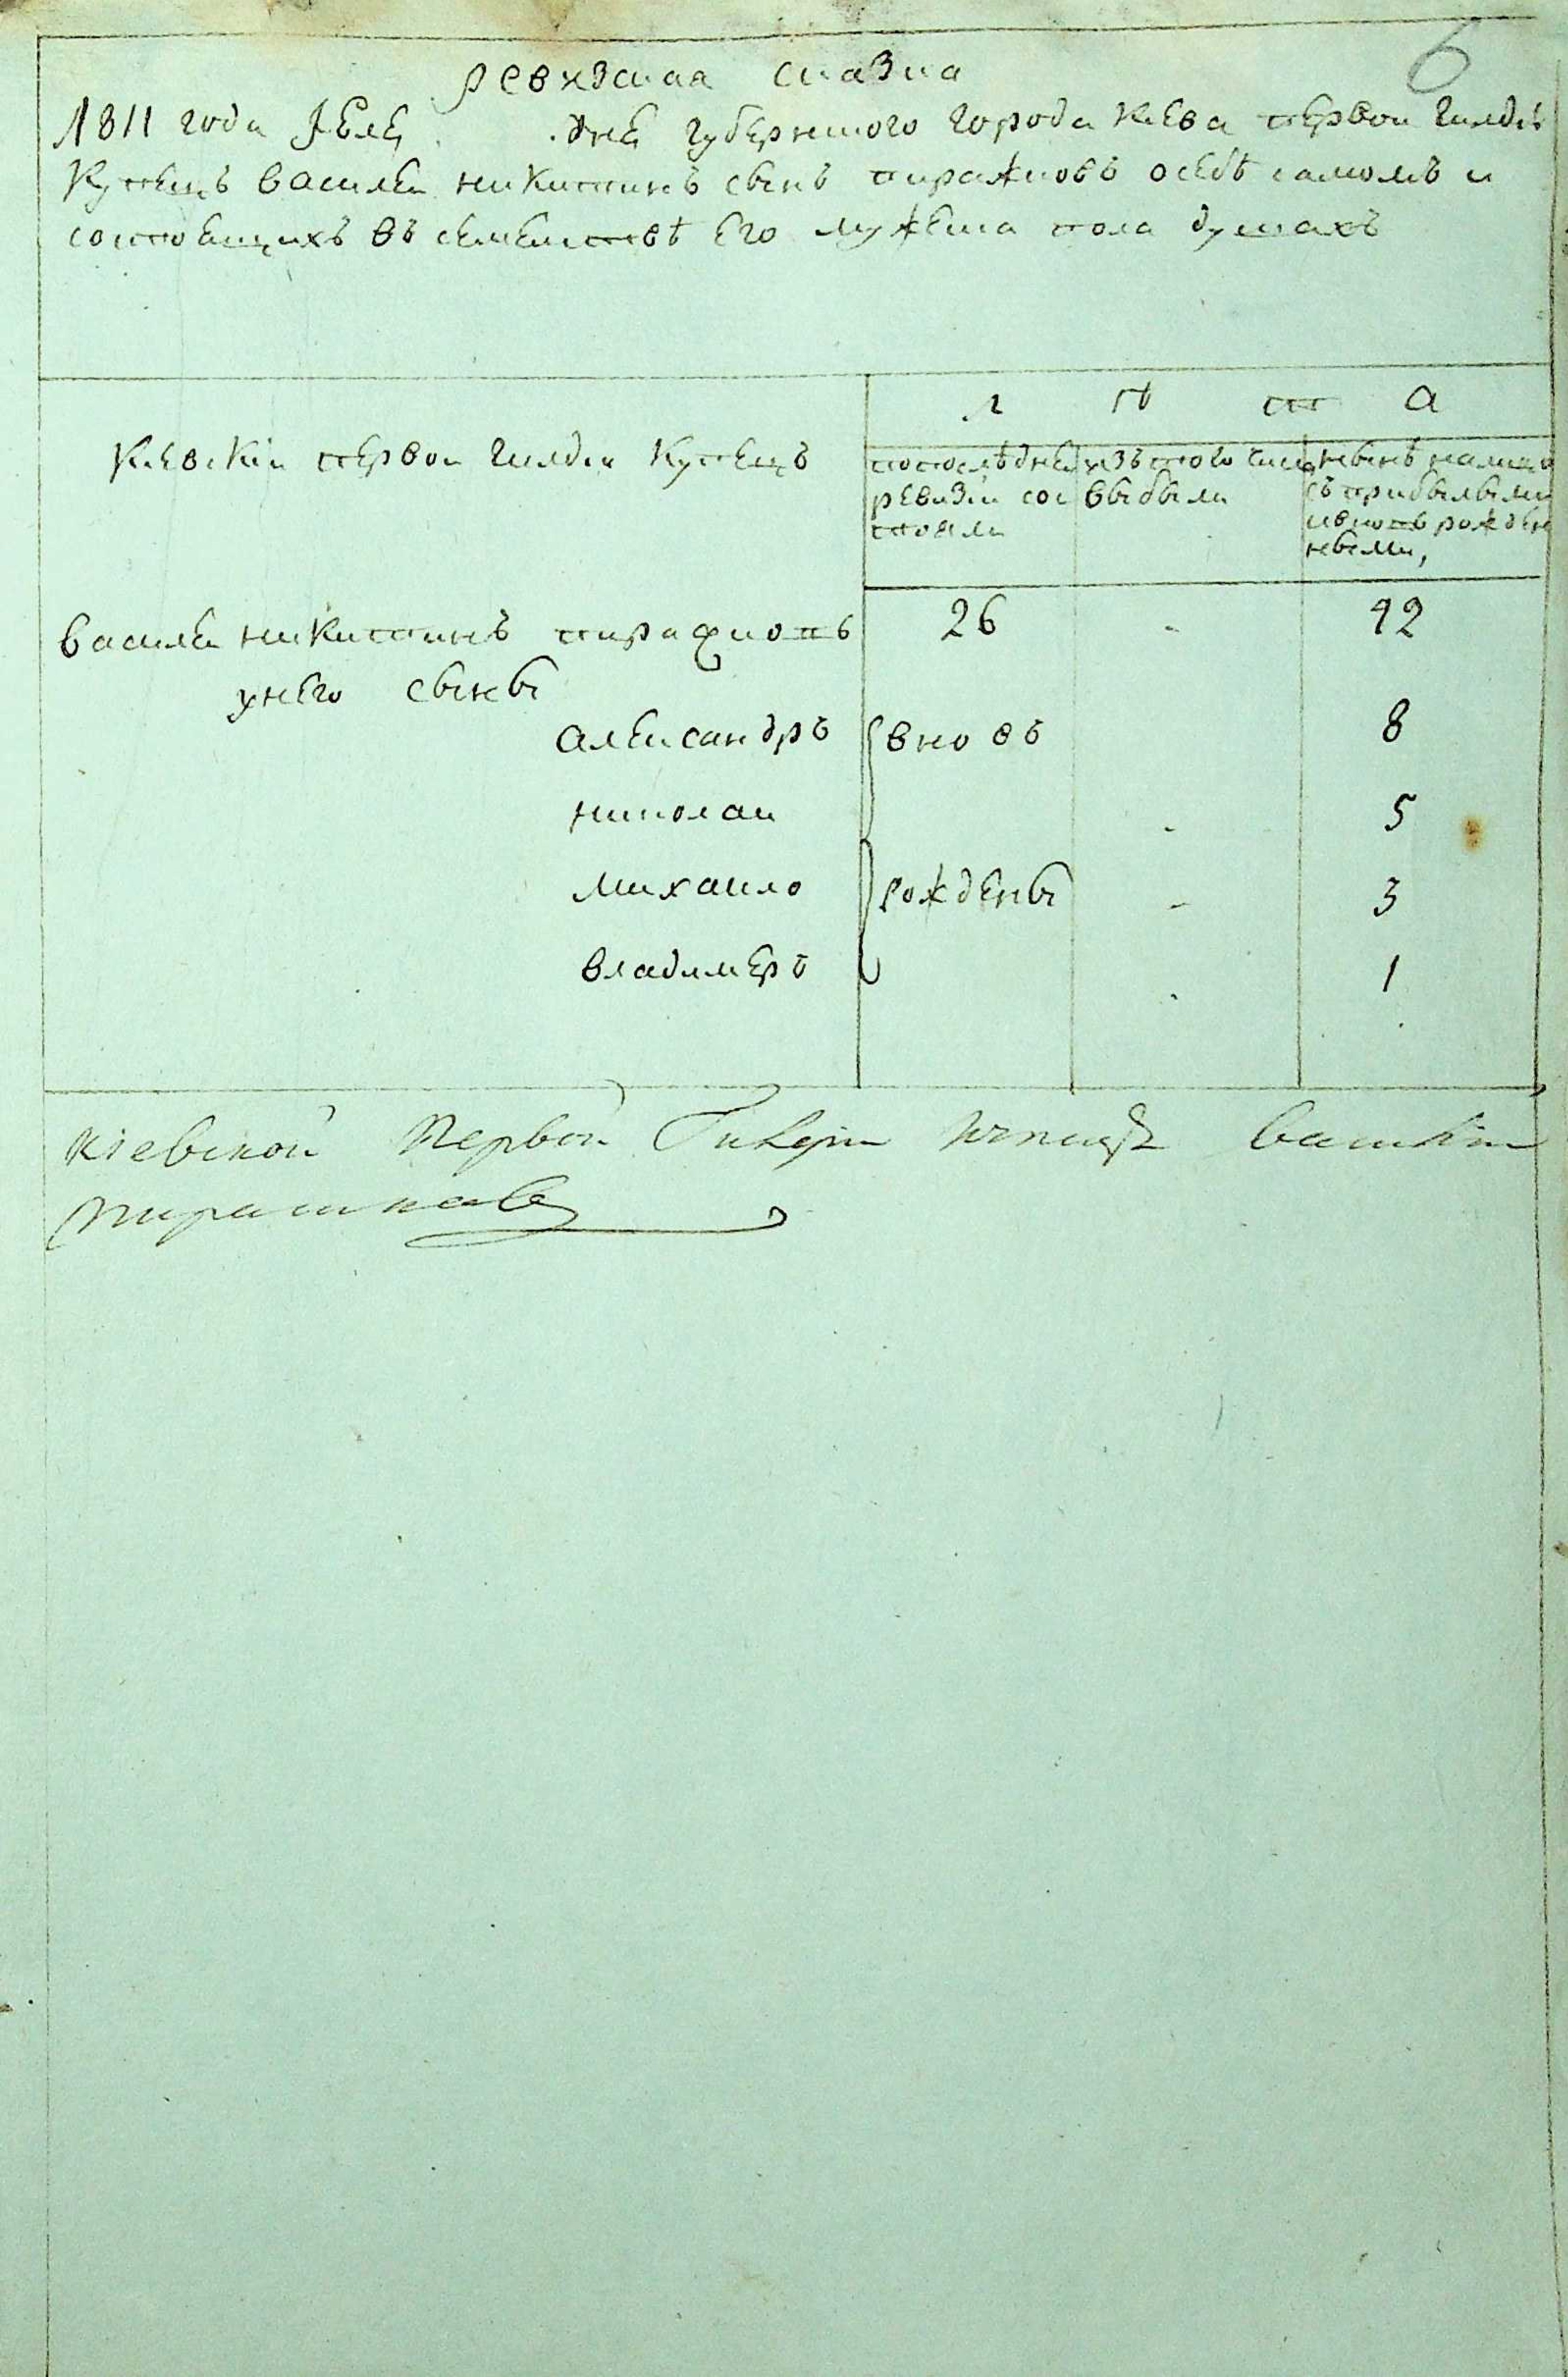 6
ревизская сказка
1811 года Июля дня губернского города Киева первой гилдии
купецъ василей никитинъ сынъ пирожковъ осебѣ самомъ и
состоящихъ въ семействѣ его мужеска пола душахъ
л ѣ т а
Киевскiй первой гилдiи купецъ
попоследней ревизiи состояли
изътого числа выбыли
нынѣ налицо съприбылыми ивновьрожденными,
василей никитинъ пирожковъ 26 - 42
унего сыны
александръ вновь 8
николай - 5
михайло рождены - 3
владимеръ - 1
кiевской первой Гилдiи купецъ василiй
пирашковъ